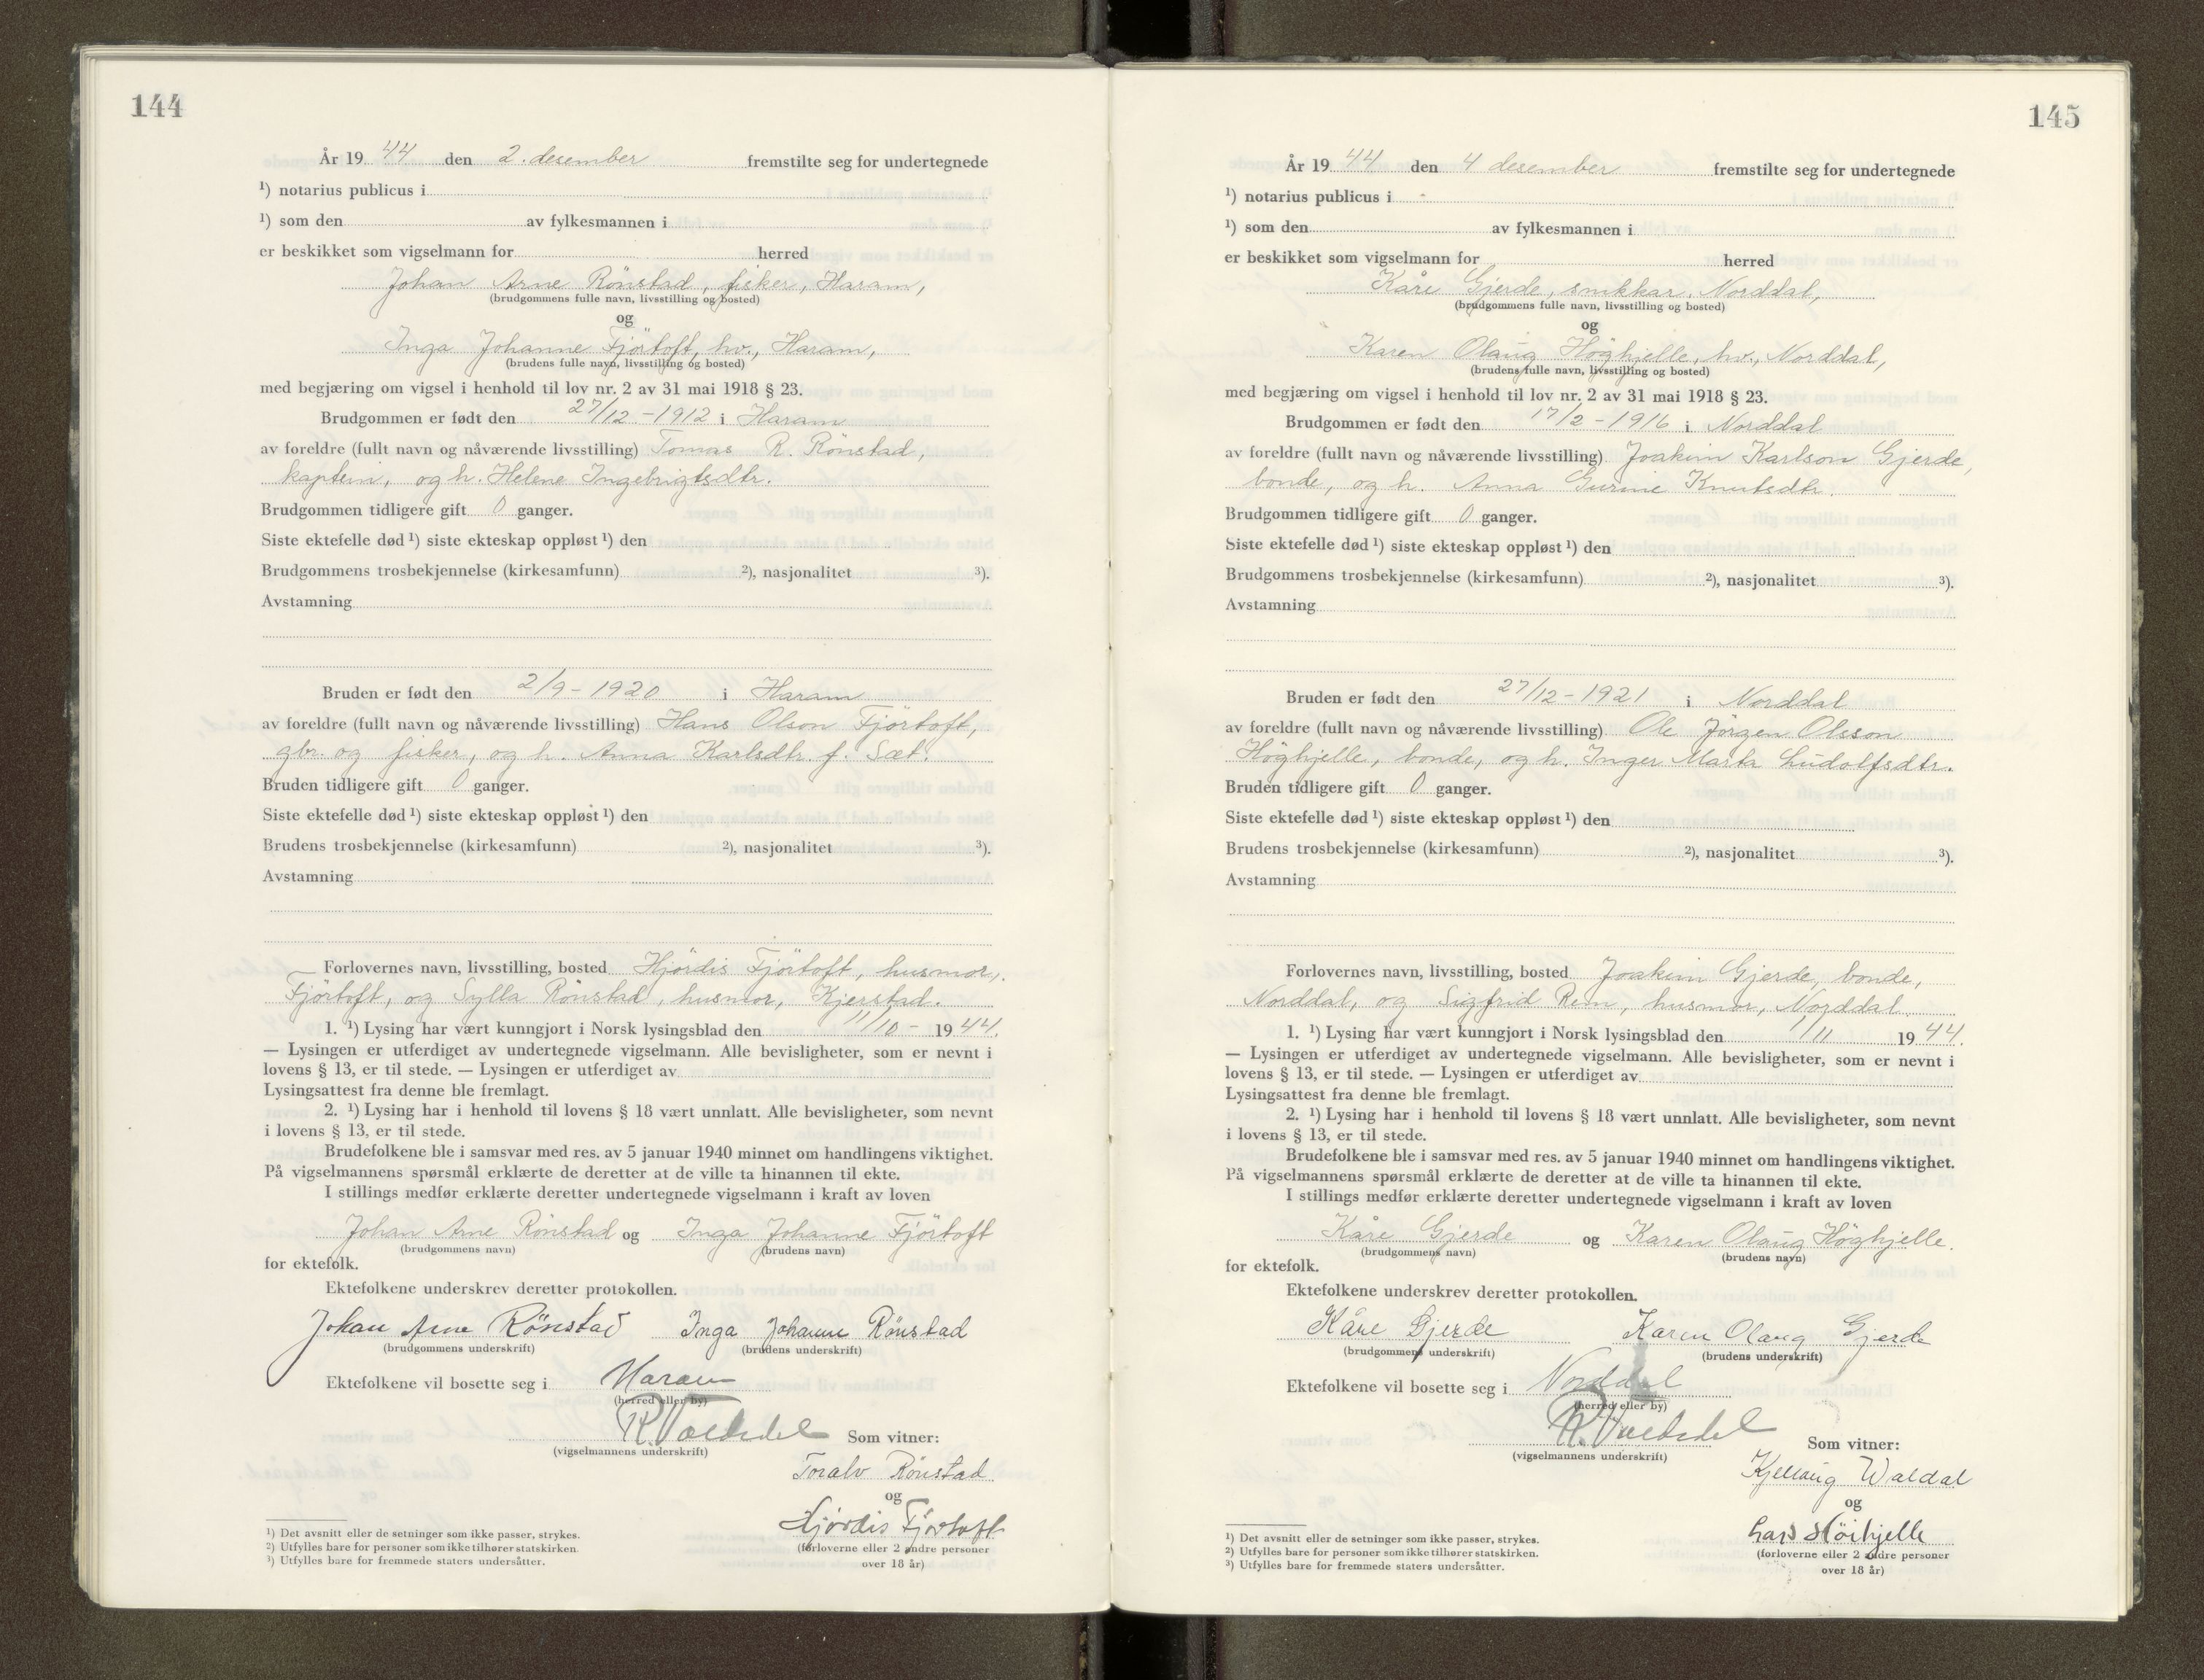 144
År 19 44 den 2. desember fremstilte seg for undertegnede
¹) notarius publicus i
¹) som den av fylkesmannen i
er beskikket som vigselmann for herred
Johan Arne Rönstad, fisker, Haram,
(brudgommens fulle navn, livsstilling og bosted)
og
Inga Johanne Fjörtoft, hv., Haram,
(brudens fulle navn, livsstilling og bosted)
med begjæring om vigsel i henhold til lov nr. 2 av 31 mai 1918 § 23.
Brudgommen er født den 27/12 - 1912 i Haram
av foreldre (fullt navn og nåværende livsstilling) Tomas R. Rönstad,
kaptein, og h. Helene Ingebrigtsdtr.
Brudgommen tidligere gift 0 ganger.
Siste ektefelle død ¹) siste ekteskap oppløst ¹) den
Brudgommens trosbekjennelse (kirkesamfunn) ²), nasjonalitet ³).
Avstamning
Bruden er født den 2/9 - 1920 i Haram
av foreldre (fullt navn og nåværende livsstilling) Hans Olson Fjörtoft,
gbr. og fisker, og h. Anna Karlsdtr. f. Sæt.
Bruden tidligere gift 0 ganger.
Siste ektefelle død ¹) siste ekteskap oppløst ¹) den
Brudens trosbekjennelse (kirkesamfunn) ²), nasjonalitet ³).
Avstamning
Forlovernes navn, livsstilling, bosted Hjördis Fjörtoft, husmor,
Fjörtoft, og Sylla Rönstad, husmor, Kjerstad.
1. ¹) Lysing har vært kunngjort i Norsk lysingsblad den 11/10 - 19 44.
— Lysingen er utferdiget av undertegnede vigselmann. Alle bevisligheter, som er nevnt i
lovens § 13, er til stede. — Lysingen er utferdiget av
Lysingsattest fra denne ble fremlagt.
2. ¹) Lysing har i henhold til lovens § 18 vært unnlatt. Alle bevisligheter, som nevnt
i lovens § 13, er til stede.
Brudefolkene ble i samsvar med res. av 5 januar 1940 minnet om handlingens viktighet.
På vigselmannens spørsmål erklærte de deretter at de ville ta hinannen til ekte.
I stillings medfør erklærte deretter undertegnede vigselmann i kraft av loven
Johan Arne Rönstad og Inga Johanne Fjörtoft
(brudgommens navn) (brudens navn)
for ektefolk.
Ektefolkene underskrev deretter protokollen.
Johan Arne Rönstad Inga Johanne Rönstad
(brudgommens underskrift) (brudens underskrift)
Ektefolkene vil bosette seg i Haram
(herred eller by)
(vigselmannens underskrift) Som vitner:
Toralv Rönstad
og
Hjördis Fjørtoft
(forloverne eller 2 andre personer
over 18 år)
¹) Det avsnitt eller de setninger som ikke passer, strykes.
²) Utfylles bare for personer som ikke tilhører statskirken.
³) Utfylles bare for fremmede staters undersåtter.
145
År 19 44 den 4 desember fremstilte seg for undertegnede
¹) notarius publicus i
¹) som den av fylkesmannen i
er beskikket som vigselmann for herred
Kåre Gjerde, snikkar, Norddal,
(brudgommens fulle navn, livsstilling og bosted)
og
Karen Olaug Höghjelle, hv., Norddal,
(brudens fulle navn, livsstilling og bosted)
med begjæring om vigsel i henhold til lov nr. 2 av 31 mai 1918 § 23.
Brudgommen er født den 17/2 - 1916 i Norddal
av foreldre (fullt navn og nåværende livsstilling) Joakim Karlson Gjerde,
bonde, og h. Anna Gurine Knutsdtr.
Brudgommen tidligere gift 0 ganger.
Siste ektefelle død ¹) siste ekteskap oppløst ¹) den
Brudgommens trosbekjennelse (kirkesamfunn) ²), nasjonalitet ³).
Avstamning
Bruden er født den 27/12 - 1921 i Norddal
av foreldre (fullt navn og nåværende livsstilling) Ole Jörgen Olsson
Höghjelle, bonde, og h. Inger Marta Ludolfsdtr.
Bruden tidligere gift 0 ganger.
Siste ektefelle død ¹) siste ekteskap oppløst ¹) den
Brudens trosbekjennelse (kirkesamfunn) ²), nasjonalitet ³).
Avstamning
Forlovernes navn, livsstilling, bosted Joakim Gjerde, bonde,
Norddal, og Sigfrid Rem, husmor, Norddal.
1. ¹) Lysing har vært kunngjort i Norsk lysingsblad den 1/11 19 44.
— Lysingen er utferdiget av undertegnede vigselmann. Alle bevisligheter, som er nevnt i
lovens § 13, er til stede. — Lysingen er utferdiget av
Lysingsattest fra denne ble fremlagt.
2. ¹) Lysing har i henhold til lovens § 18 vært unnlatt. Alle bevisligheter, som nevnt
i lovens § 13, er til stede.
Brudefolkene ble i samsvar med res. av 5 januar 1940 minnet om handlingens viktighet.
På vigselmannens spørsmål erklærte de deretter at de ville ta hinannen til ekte.
I stillings medfør erklærte deretter undertegnede vigselmann i kraft av loven
Kåre Gjerde og Karen Olaug Höghjelle.
(brudgommens navn) (brudens navn)
for ektefolk.
Ektefolkene underskrev deretter protokollen.
Kåre Gjerde Karen Olaug Gjerde
(brudgommens underskrift) (brudens underskrift)
Ektefolkene vil bosette seg i Norddal
(herred eller by)
(vigselmannens underskrift) Som vitner:
Kjellaug Waldal
og
Lars Höihjelle
(forloverne eller 2 andre personer
over 18 år)
¹) Det avsnitt eller de setninger som ikke passer, strykes.
²) Utfylles bare for personer som ikke tilhører statskirken.
³) Utfylles bare for fremmede staters undersåtter.